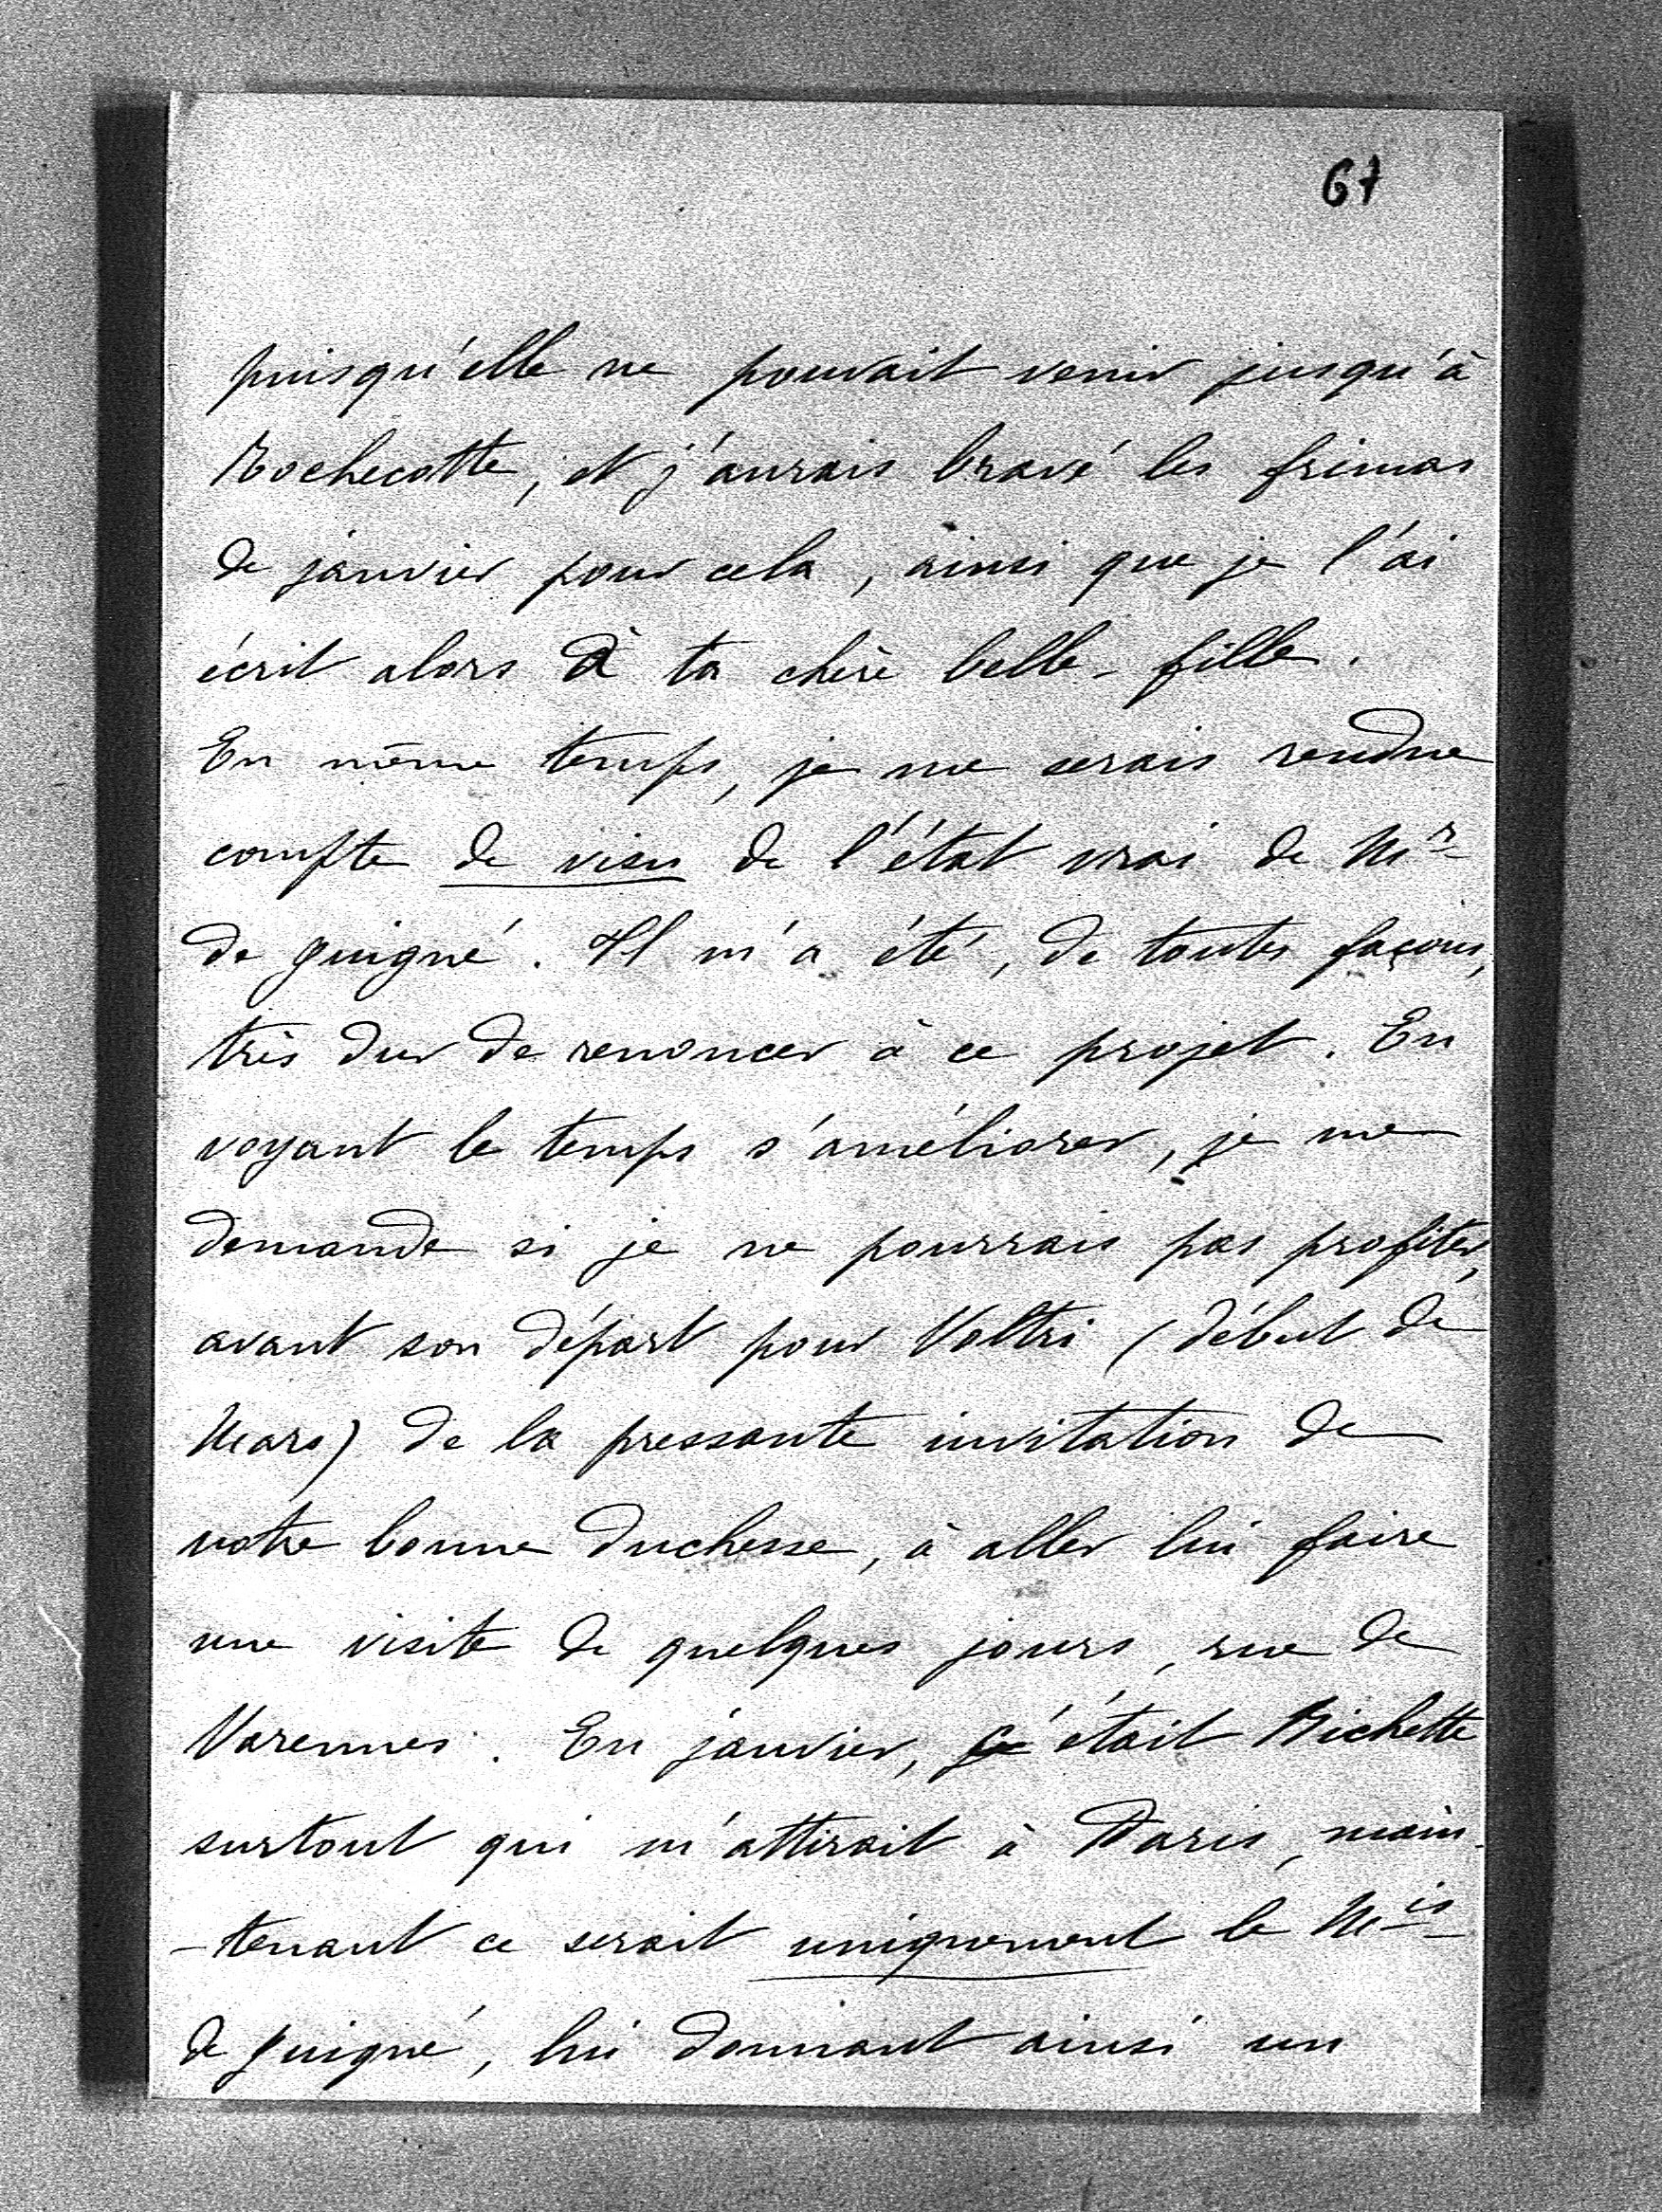 67
puisqu'elle ne pouvait venir jusqu'à
Rochecotte, et j'aurais bravé les frimas
de janvier pour cela, ainsi que je l'ai
écrit alors à ta chère belle-fille.
En même temps, je me serais rendue
compte de visu de l'état vrai de Mr
de Juigné. Il m'a été, de toutes façons,
très dur de renoncer à ce projet. En
voyant le temps s'améliorer, je me
demande si je ne pourrais pas profiter,
avant son départ pour Voltri (début de
Mars) de la pressante invitation de
notre bonne Duchesse, à aller lui faire
une visite de quelques jours, rue de
Varennes. En janvier, ç'était Bichette
surtout qui m'attirait à Paris, main-
-tenant ce serait uniquement le Mis
de Juigné, lui donnant ainsi un